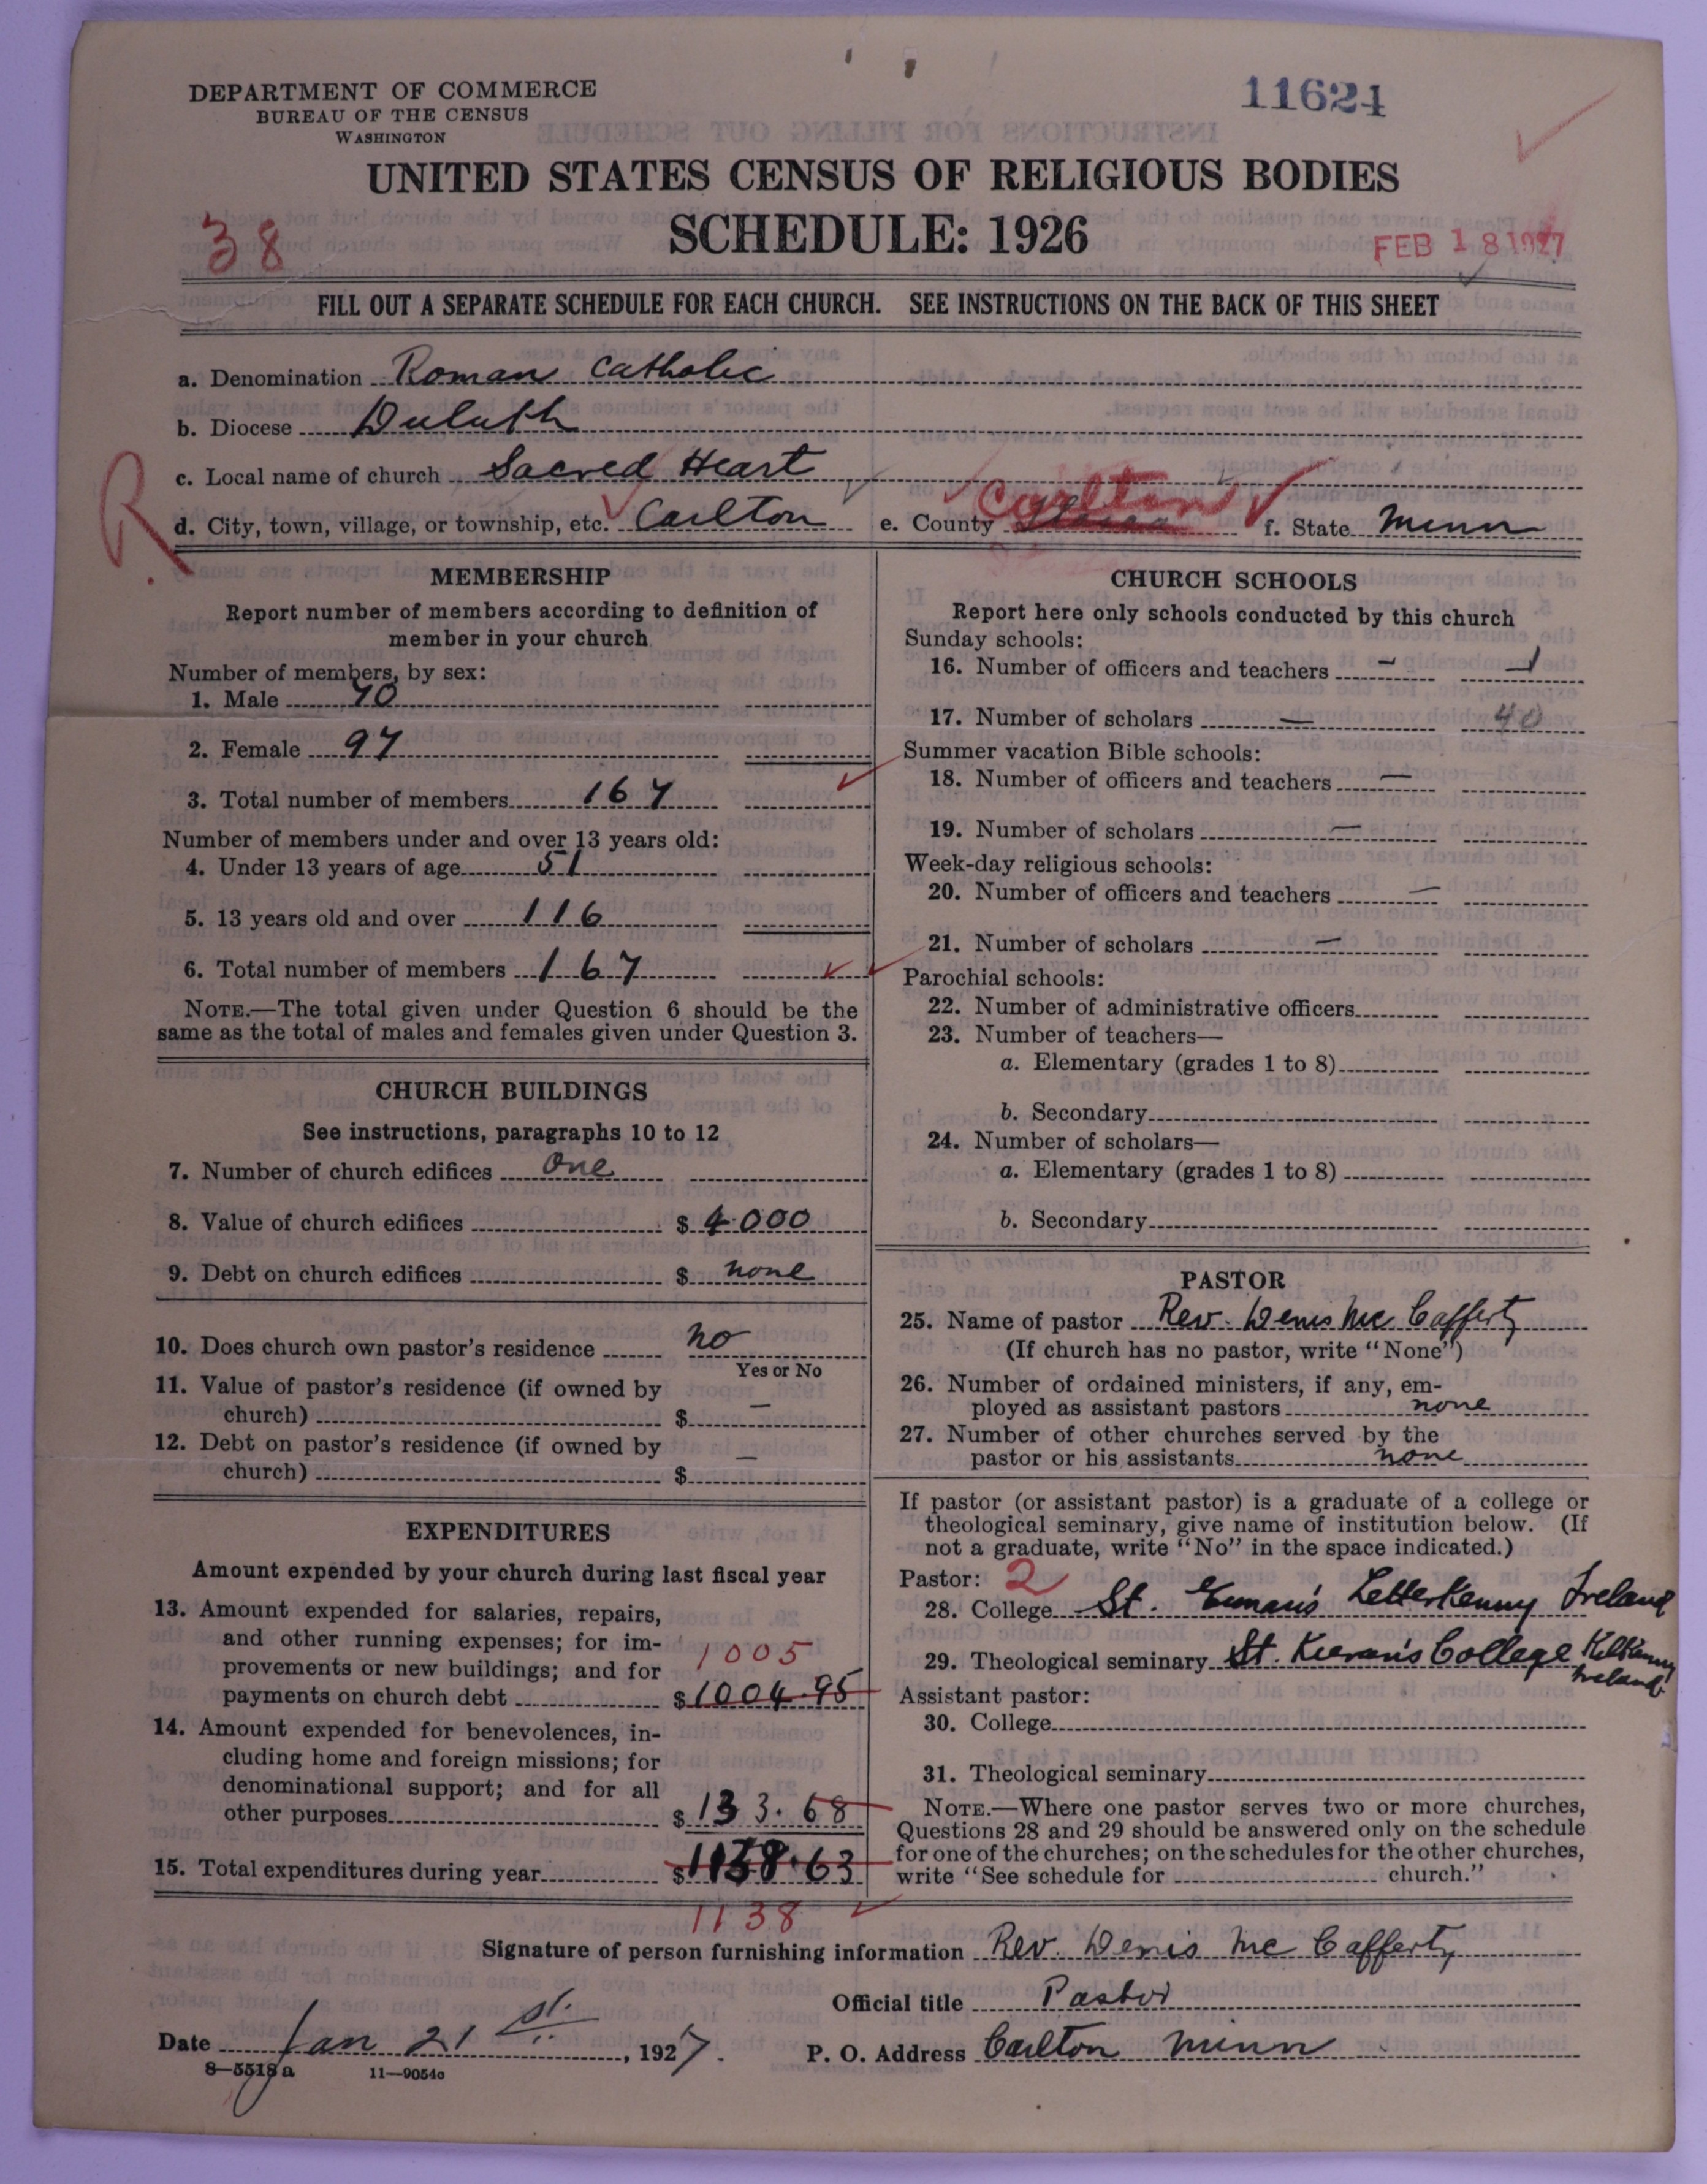 DEPARTMENT OF COMMERCE
BUREAU OF THE CENSUS
WASHINGTON
11624
UNITED STATES CENSUS OF RELIGIOUS BODIES
SCHEDULE: 1926
38
FEB 18 1927
FILL OUT A SEPARATE SCHEDULE FOR EACH CHURCH. SEE INSTRUCTIONS ON THE BACK OF THIS SHEET
a. Denomination Roman Catholic
b. Diocese Duluth
c. Local name of church Sacred Heart
R
d. City, town, village, or township, etc. Carlton e. County Carlton f. State Minn
MEMBERSHIP
Report number of members according to definition of
member in your church
Number of members, by sex:
1. Male 70
2. Female 97
3. Total number of members 167
Number of members under and over 13 years old:
4. Under 13 years of age 51
5. 13 years old and over 116
6. Total number of members 167
NOTE.—The total given under Question 6 should be the
same as the total of males and females given under Question 3.
CHURCH BUILDINGS
See instructions, paragraphs 10 to 12
7. Number of church edifices One
8. Value of church edifices $ 4000
9. Debt on church edifices $ none
10. Does church own pastor's residence no
Yes or No
11. Value of pastor's residence (if owned by
church) $ —
12. Debt on pastor's residence (if owned by
church) $ —
EXPENDITURES
Amount expended by your church during last fiscal year
13. Amount expended for salaries, repairs,
and other running expenses; for im-
provements or new buildings; and for 1005
payments on church debt $ 1004.95
14. Amount expended for benevolences, in-
cluding home and foreign missions; for
denominational support; and for all
other purposes $ 133.68
15. Total expenditures during year $ 1138.63
1138
CHURCH SCHOOLS
Report here only schools conducted by this church
Sunday schools:
16. Number of officers and teachers — 1
17. Number of scholars — 40
Summer vacation Bible schools:
18. Number of officers and teachers —
19. Number of scholars —
Week-day religious schools:
20. Number of officers and teachers —
21. Number of scholars —
Parochial schools:
22. Number of administrative officers
23. Number of teachers—
a. Elementary (grades 1 to 8)
b. Secondary
24. Number of scholars—
a. Elementary (grades 1 to 8)
b. Secondary
PASTOR
25. Name of pastor Rev. Denis Mc Cafferty
(If church has no pastor, write "None")
26. Number of ordained ministers, if any, em-
ployed as assistant pastors none
27. Number of other churches served by the
pastor or his assistants none
If pastor (or assistant pastor) is a graduate of a college or
theological seminary, give name of institution below. (If
not a graduate, write "No" in the space indicated.)
Pastor: 2
28. College St. Eunan's Letterkenny Ireland
29. Theological seminary St. Kieran's College Kilkenny
Ireland
Assistant pastor:
30. College
31. Theological seminary
NOTE.—Where one pastor serves two or more churches,
Questions 28 and 29 should be answered only on the schedule
for one of the churches; on the schedules for the other churches,
write "See schedule for church."
Signature of person furnishing information Rev. Denis Mc Cafferty
Official title Pastor
Date Jan 21 st. , 1927.
P. O. Address Carlton Minn
8—5518a 11—9054a